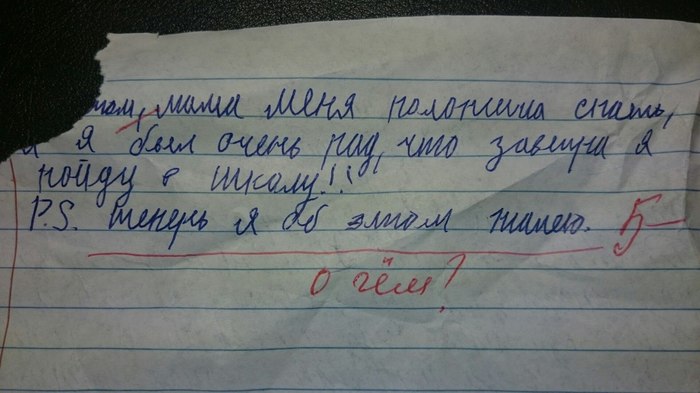 мама меня положила спать,
и я был очень рад, что завтра я
пойду в школу!!!
P.S. теперь я об этом жалею. 5-
о чём?